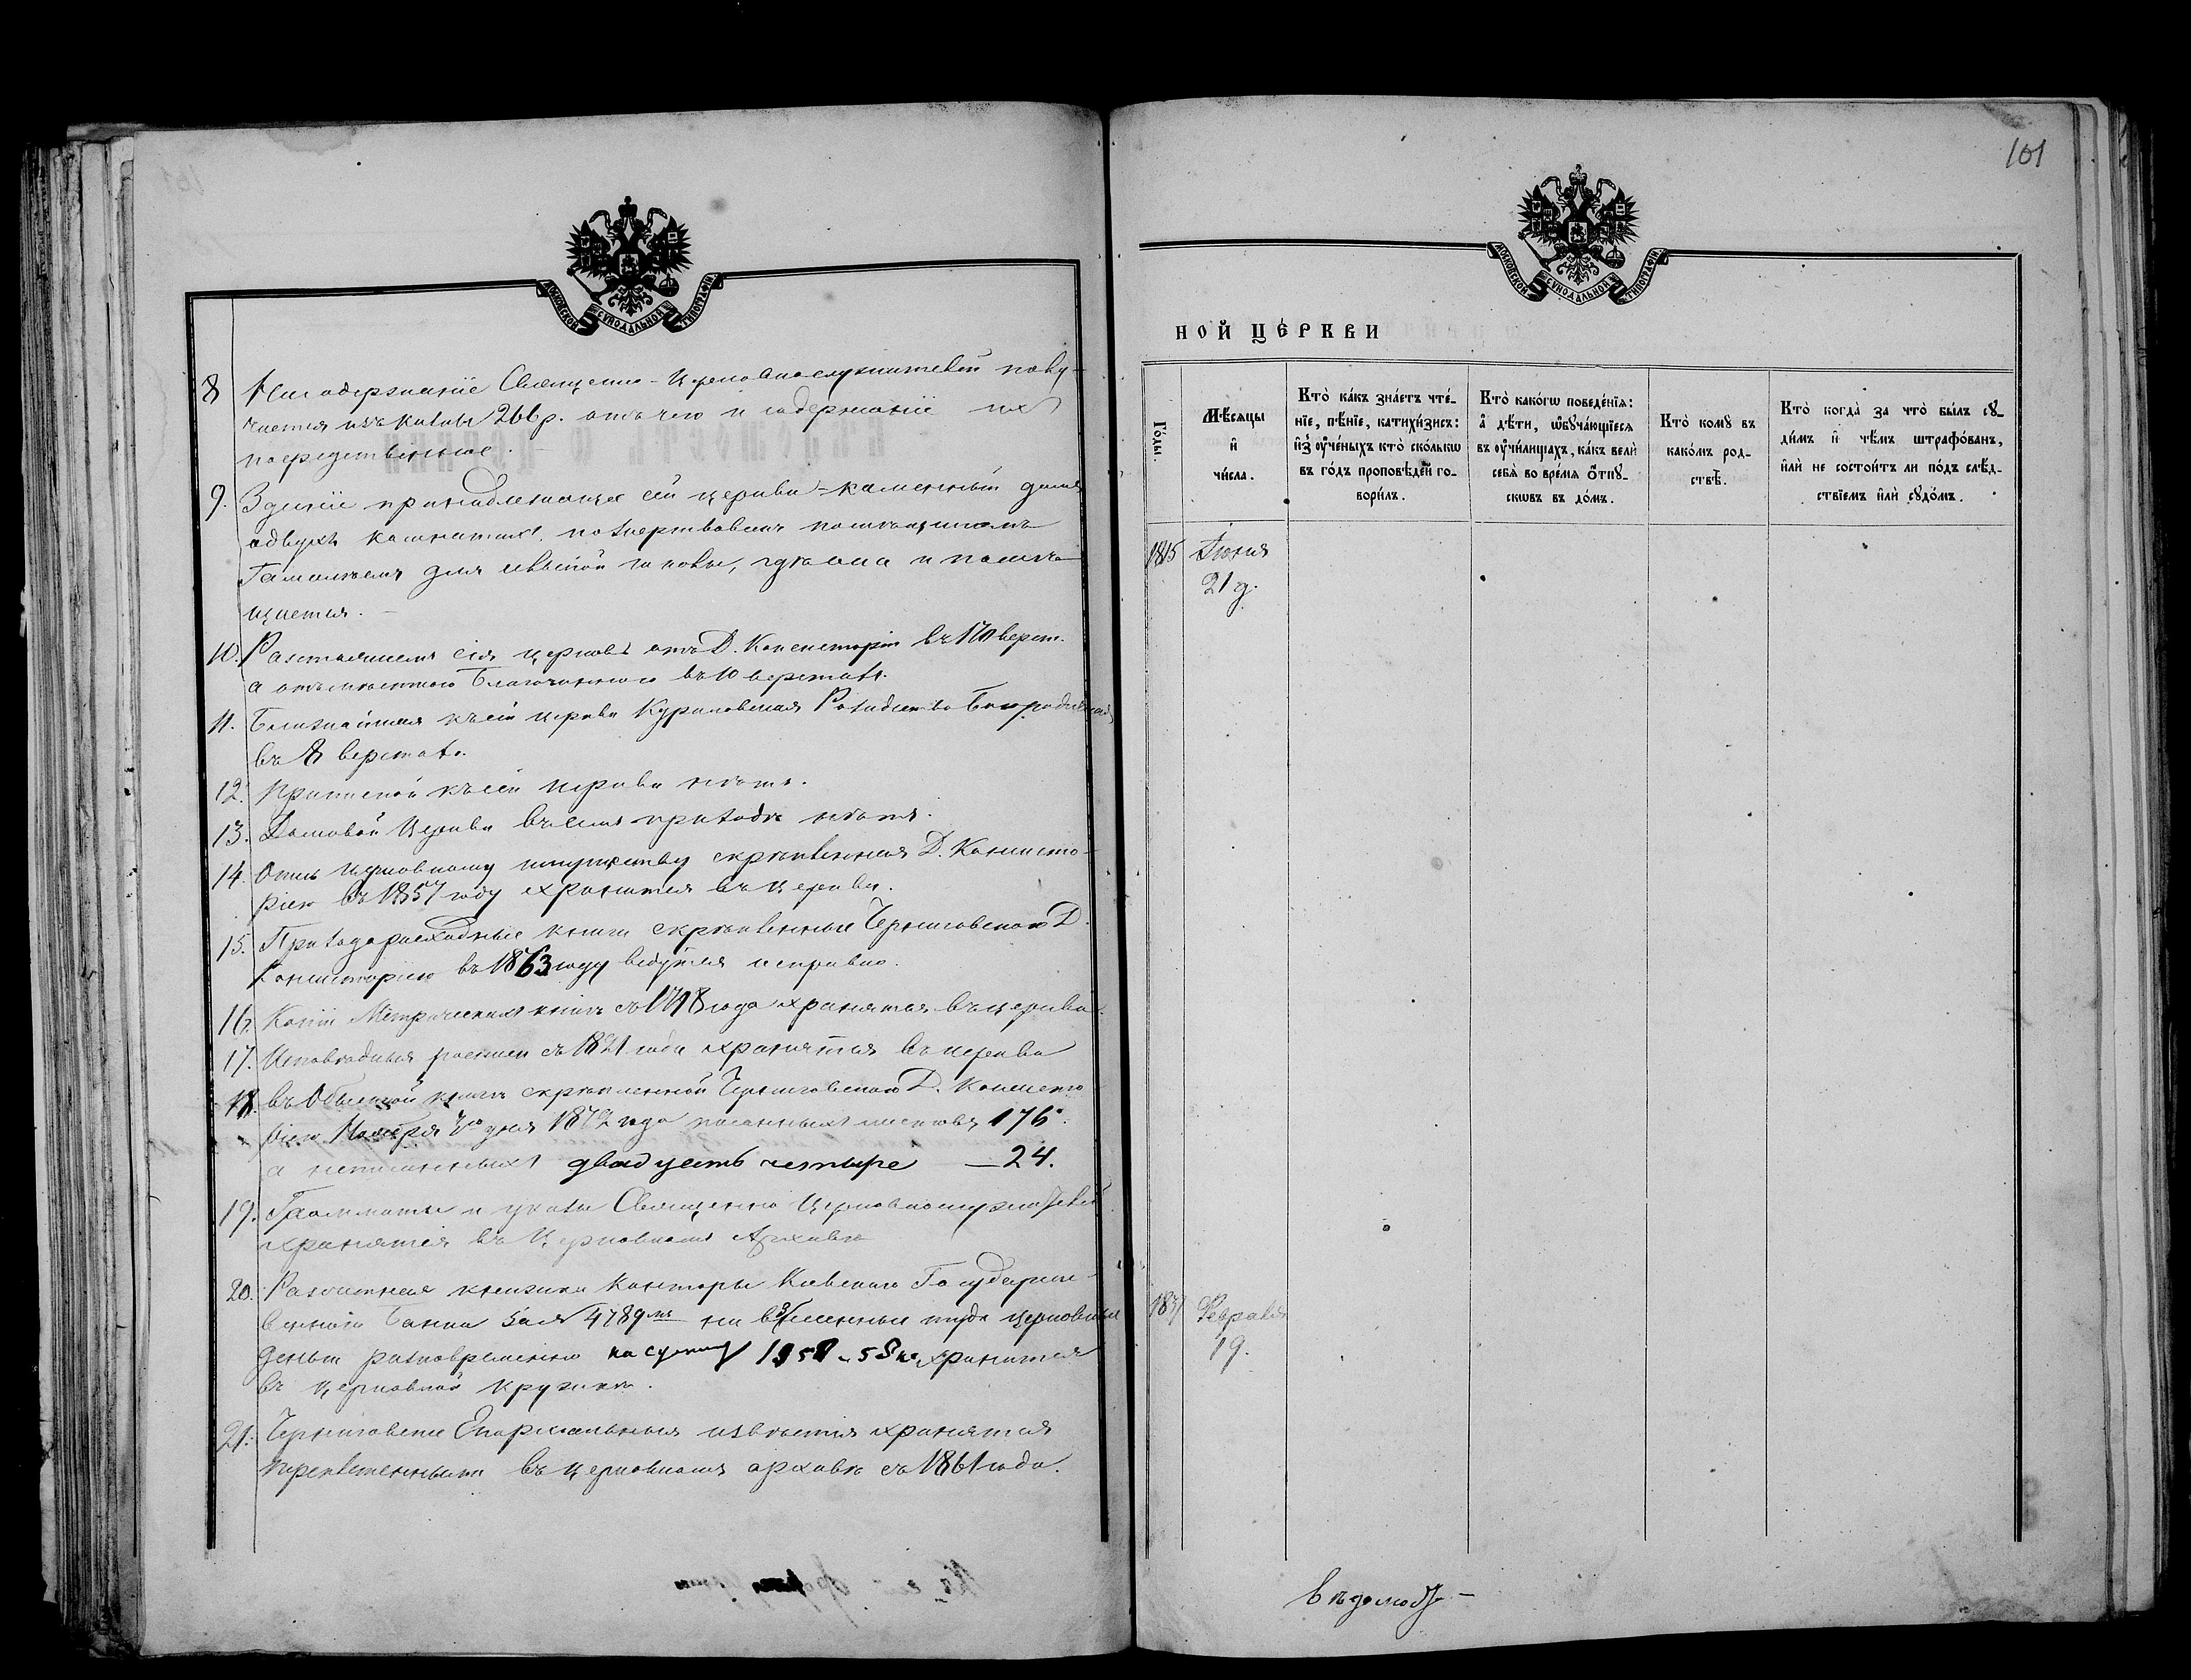 МОСКОВСКОЙ СѴНОДАЛЬНОЙ ТИПОГРАФІИ
8 На содержаніе Священно-Церковнослужителей полу-
чается изъ казны 266 р. отъ чего и содержаніе ихъ
посредственное.
9. Зданіе принадлежащее сей церкви - каменный домъ
о двухъ комнатахъ, пожертвованъ помѣщикомъ
для школы, гдѣ она и помѣ-
щается.
10. Разстояніемъ сія церковь отъ Д. Консисторіи въ 170 верст.
а отъ мѣстнаго Благочиннаго въ 10 верстахъ.
11. Ближайшая къ сей церкви Куриловская Рождество Богородичная
въ 8 верстахъ.
12. Приписной къ сей церкви нѣтъ.
13. Домовой Церкви въ семъ приходѣ нѣтъ.
14. Опись церковному имуществу скрѣпленная Д. Консисто-
ріею въ 1857 году хранится въ церкви.
15. Приходорасходные книги скрѣпленные Черниговскою Д.
Консисторіею въ 1863 году ведутся исправно.
16. Копіи Метрическихъ книгъ съ года хранятся въ церкви.
17. Исповѣдныя росписи съ 1821 года хранятся въ церкви
18. въ Обыскной книгѣ скрѣпленной Черниговскою Д. Консисто
ріею Ноября дня 1872 года писанныхъ листовъ 176.
а неписанныхъ двадцать четыре — 24.
19. Грамматы и указы Священно Церковнослужителей
хранятся въ Церковномъ Архивѣ
20. Расчетная книжка Конторы Киевскаго Государст-
веннаго Банка за № 4789 на взнесенныя туда церковныя
деньги разновременно на сумму 58 к. хранится
въ церковной кружкѣ.
21. Черниговскіе Епархіальныя извѣстія хранятся
переплетенными въ церковномъ архивѣ съ 1861 года.
101
МОСКОВСКОЙ СѴНОДАЛЬНОЙ ТИПОГРАФІИ
НОЙ ЦЕ́РКВИ
Го́ды.
Мѣ́сяцы и҆ чи́сла.
Кто̀ ка́къ зна́етъ чте́-
нїе, пѣ́нїе, катихи́зисъ:
и҆з̾ ᲂу҆че́ныхъ кто̀ ско́лькѡ
въ го́дъ проповѣ́дей го-
вори́лъ.
Кто̀ како́гѡ поведе́нїѧ:
а҆ дѣ́ти, ѡ҆бꙋча́ющїесѧ
въ ᲂу҆чи́лищахъ, ка́къ велѝ
себѧ̀ во вре́мѧ ѿпꙋ-
скѡвъ въ до́мъ.
Кто̀ комꙋ̀ въ
како́мъ род-
ствѣ̀.
Кто̀ когда̀ за что̀ бы́лъ сꙋ-
ди́мъ и҆ чѣ́мъ штрафо́ванъ,
и҆лѝ не состои́тъ ли по́дъ слѣ́д-
ствїемъ и҆лѝ сꙋдо́мъ.
1815 Іюня
21 д.
Февраля
19.
вѣдомость